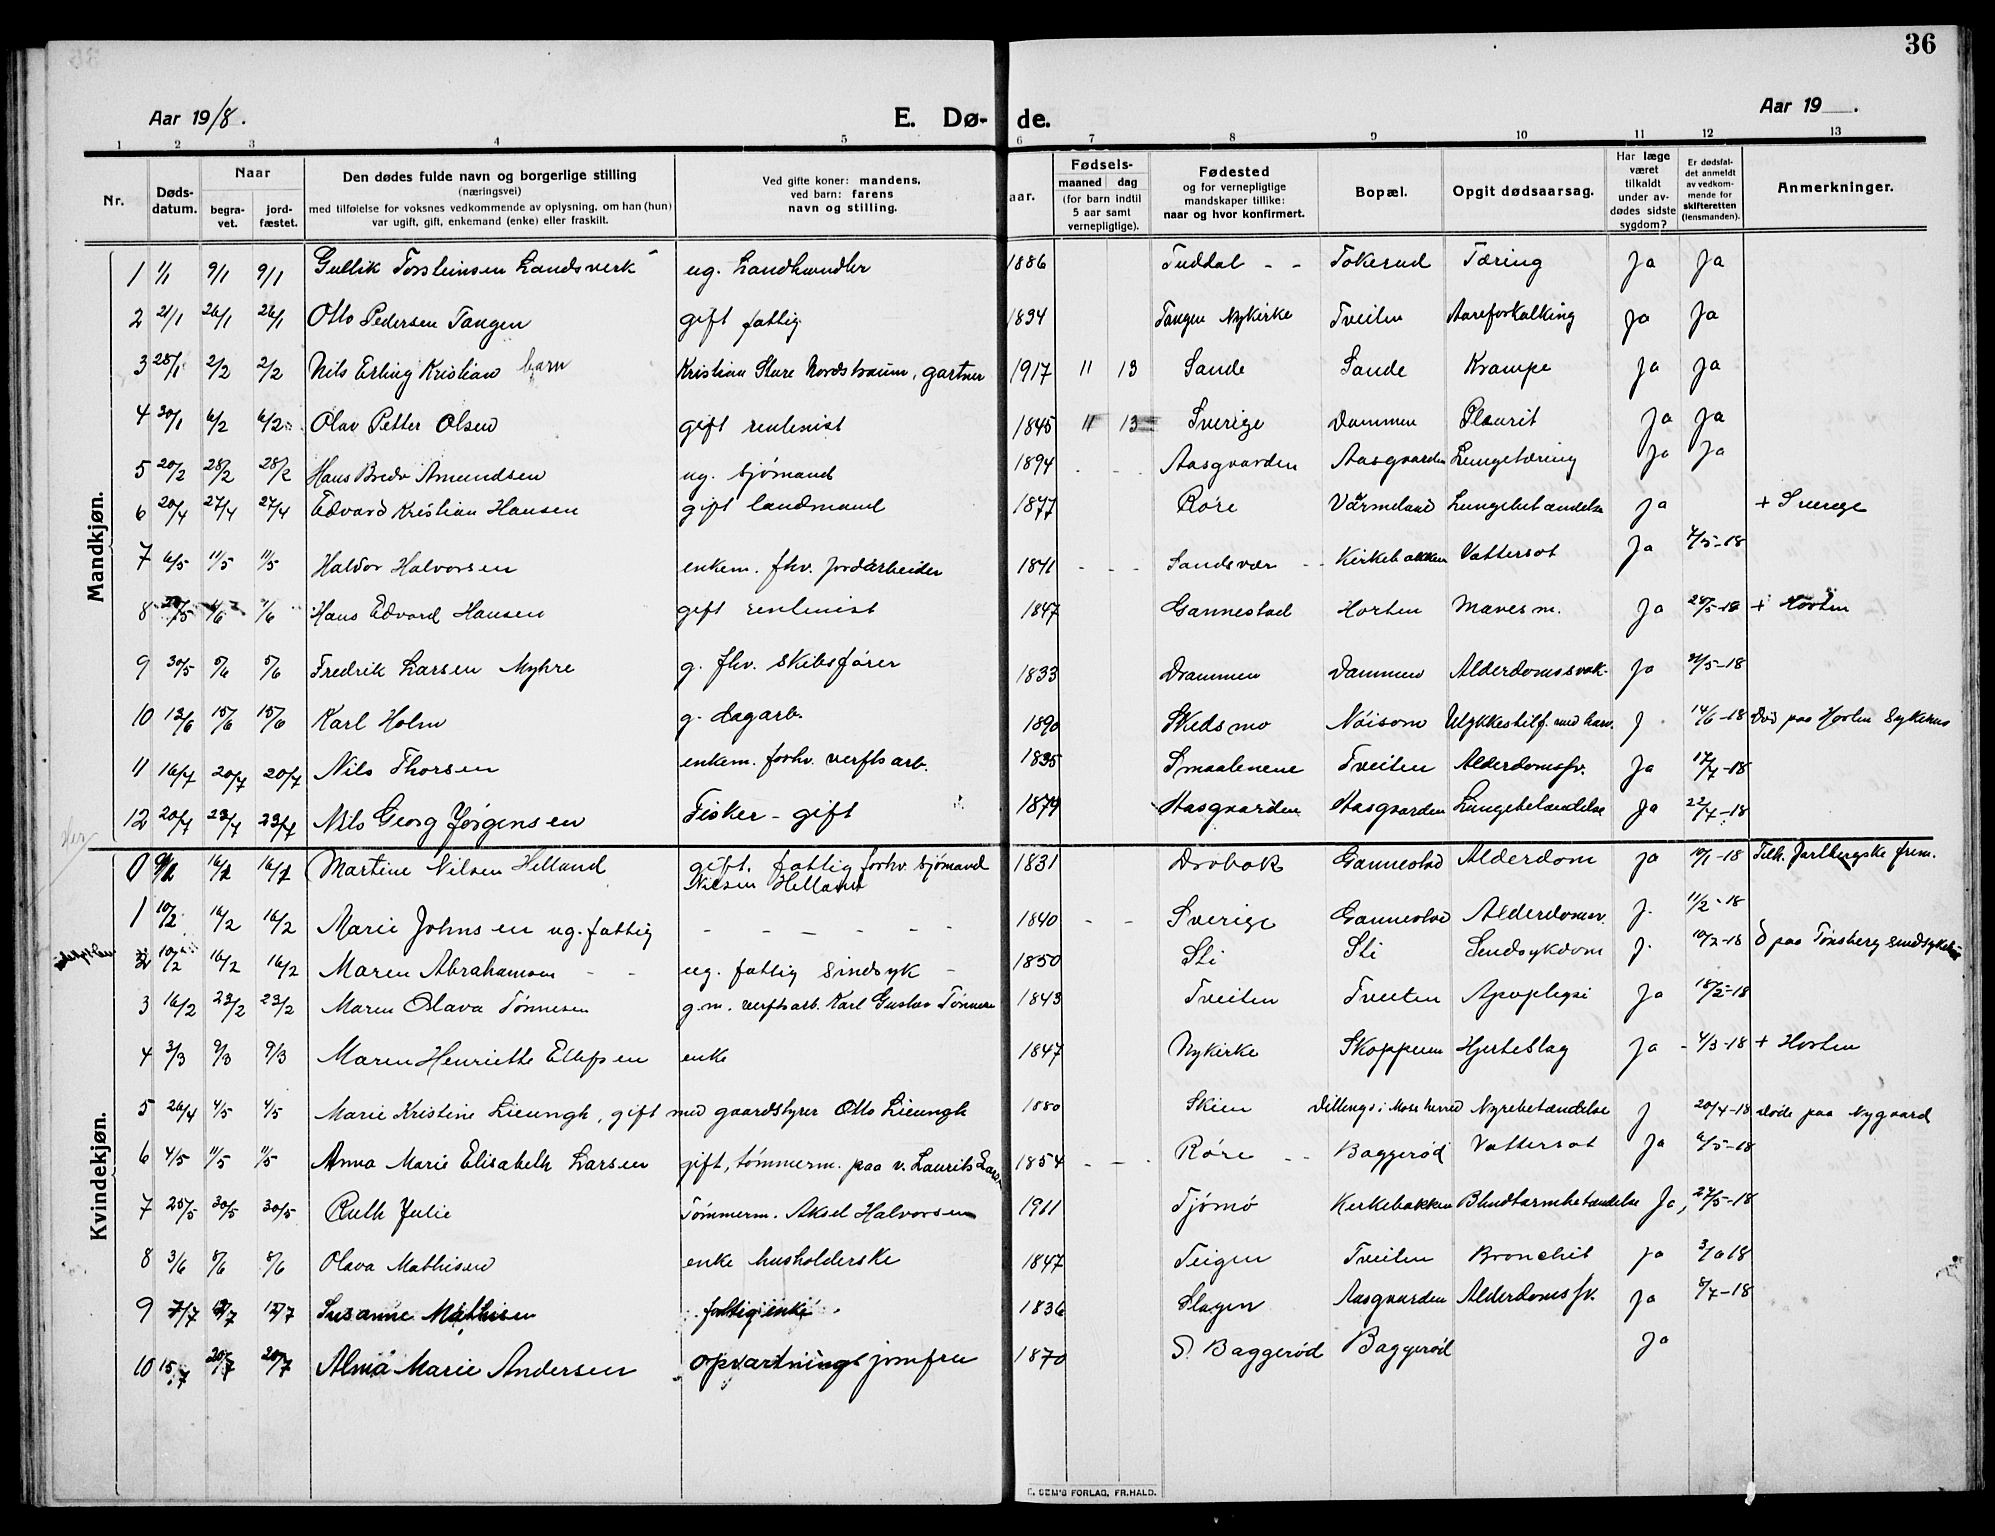 36
Aar 1918. E. Dø- de. Aar 19 .
1 2 3 4 5 6 7 8 9 10 11 12 13
Nr. Døds-datum. Naar begra-vet. jord-fæstet. Den dødes fulde navn og borgerlige stilling (næringsvei) med tilføielse for voksnes vedkommende av oplysning, om han (hun) var ugift, gift, enkemand (enke) eller fraskilt. Ved gifte koner: mandens, ved barn: farens navn og stilling. aar. Fødsels- maaned dag (for barn indtil 5 aar samt vernepligtige). Fødested og for vernepligtige mandskaper tillike: naar og hvor konfirmert. Bopæl. Opgit dødsaarsag. Har læge været tilkaldt under av-dødes sidste sygdom? Er dødsfal-det anmeldt av vedkom-mende for skifteretten (lensmanden). Anmerkninger.
Mandkjøn.
1 1/1 9/1 9/1 Gullik Torsteinsen Landsverk ug. Landhandler 1886 Tuddal - - Tokerud Tæring Ja Ja
2 21/1 26/1 26/1 Otto Pedersen Tangen gift fattig 1834 Tangen Nykirke Tveiten Aareforkalking Ja Ja
3 28/1 2/2 2/2 Nils Erling Kristian barn Kristian Sture Nordstraum, gartner 1917 11 13 Sande Sande Krampe Ja Ja
4 30/1 6/2 6/2 Olav Petter Olsen gift rentenist 1845 11 13 Sverige Dammen Pleurit Ja Ja
5 20/2 28/2 28/2 Hans Bredv Amundsen ug. sjømand 1894 - - Aasgaarden Aasgaarden Lungetæring Ja Ja
6 20/4 27/4 27/4 Edvard Kristian Hansen gift landmand 1877 Røre Värmeland Lungebetændelse Ja + Sverige
7 6/5 11/5 11/5 Haldor Halvorsen enkem. fhv. jordarbeider 1841 - - - Sandsvær - - Kirkebakken Vattersot Ja 7/5-18
8 28/5 1/6 1/6 Hans Edvard Hansen gift rentenist 1847 Gannestad Horten Mavesm. Ja 28/5-18 + Horten
9 30/5 5/6 5/6 Fredrik Larsen Myhre g. fhv. skibsfører 1833 Drammen Dammen Alderdomssvak. Ja 31/5-18
10 12/6 15/6 15/6 Karl Holm g. dagarb. 1890 Skedsmo Nøisom Ulykkestilf. med kan. J. 14/6-18 Død paa Horten Sykehus
11 16/7 20/7 20/7 Nils Thorsen enkem. forhv. verftsarb. 1835 Smaalenene Tveiten Alderdomssv. Ja 17/7-18
12 20/7 23/7 23/7 Nils Georg Jørgensen Fisker - gift 1879 Aasgaarden Aasgaarden Lungebetændelse Ja 22/7-18
Kvindekjøn.
0 9/1 16/1 16/1 Martine Nilsen Helland gift. fattig forhv. sjømand 1831 Drøbak Gannestad Alderdom Ja 10/1-18 Tilh. Jarlbergske frim.
Nilsen Helland
1 10/2 16/2 16/2 Marie Johnsen ug. fattig - - - - - - 1840 - - Sverige Gannestad Alderdomsv. J. 11/2-18
2 10/2 16/2 16/2 Maren Abrahamsen - - ug. fattig sindsyk - 1850 Sti Sti Sindsykdom J. 10/2-18 D paa Tønsberg sindsykehus
3 16/2 23/2 23/2 Maren Olava Tønnesen g.m. verftsarb. Karl Gustav Tønnesen 1843 Tveiten Tveiten Apoplexi Ja 18/2-18
4 3/3 9/3 9/3 Maren Henriette Ellefsen enke 1847 Nykirke Skoppum Hjerteslag Ja - 4/3-18 + Horten
5 26/4 4/5 4/5 Marie Kristine Lieungh, gift med gaardstyrer Otto Lieungh 1880 Skien Dillengs i Moss herred Nyrebetændelse J 20/4-18 Døde paa Nygaard
6 4/5 11/5 11/5 Anna Marie Elisabeth Larsen gift, tømmerm. paa v. Laurits Larsen 1854 - - Røre - - Baggerød Vattersot Ja 6/5-18
7 25/5 30/5 30/5 Ruth Julie Tømmerm. Aksel Halvorsen 1911 Tjømø Kirkebakken Blindtarmbetændelse Ja, 27/5-18
8 3/6 8/6 8/6 Olava Mathisen enke husholderske 1847 Teigen Tveiten Bronchit Ja 3/6 18
9 7/7 12/7 12/7 Susanne Mathisen fattig enke 1836 Slagen Aasgaarden Alderdomssv. Ja 8/7-18
10 15/7 20/7 20/7 Alma Marie Andersen opvartningsjomfru 1870 S. Baggerød Baggerød Ja
E. SEM'S FORLAG, FR.HALD.